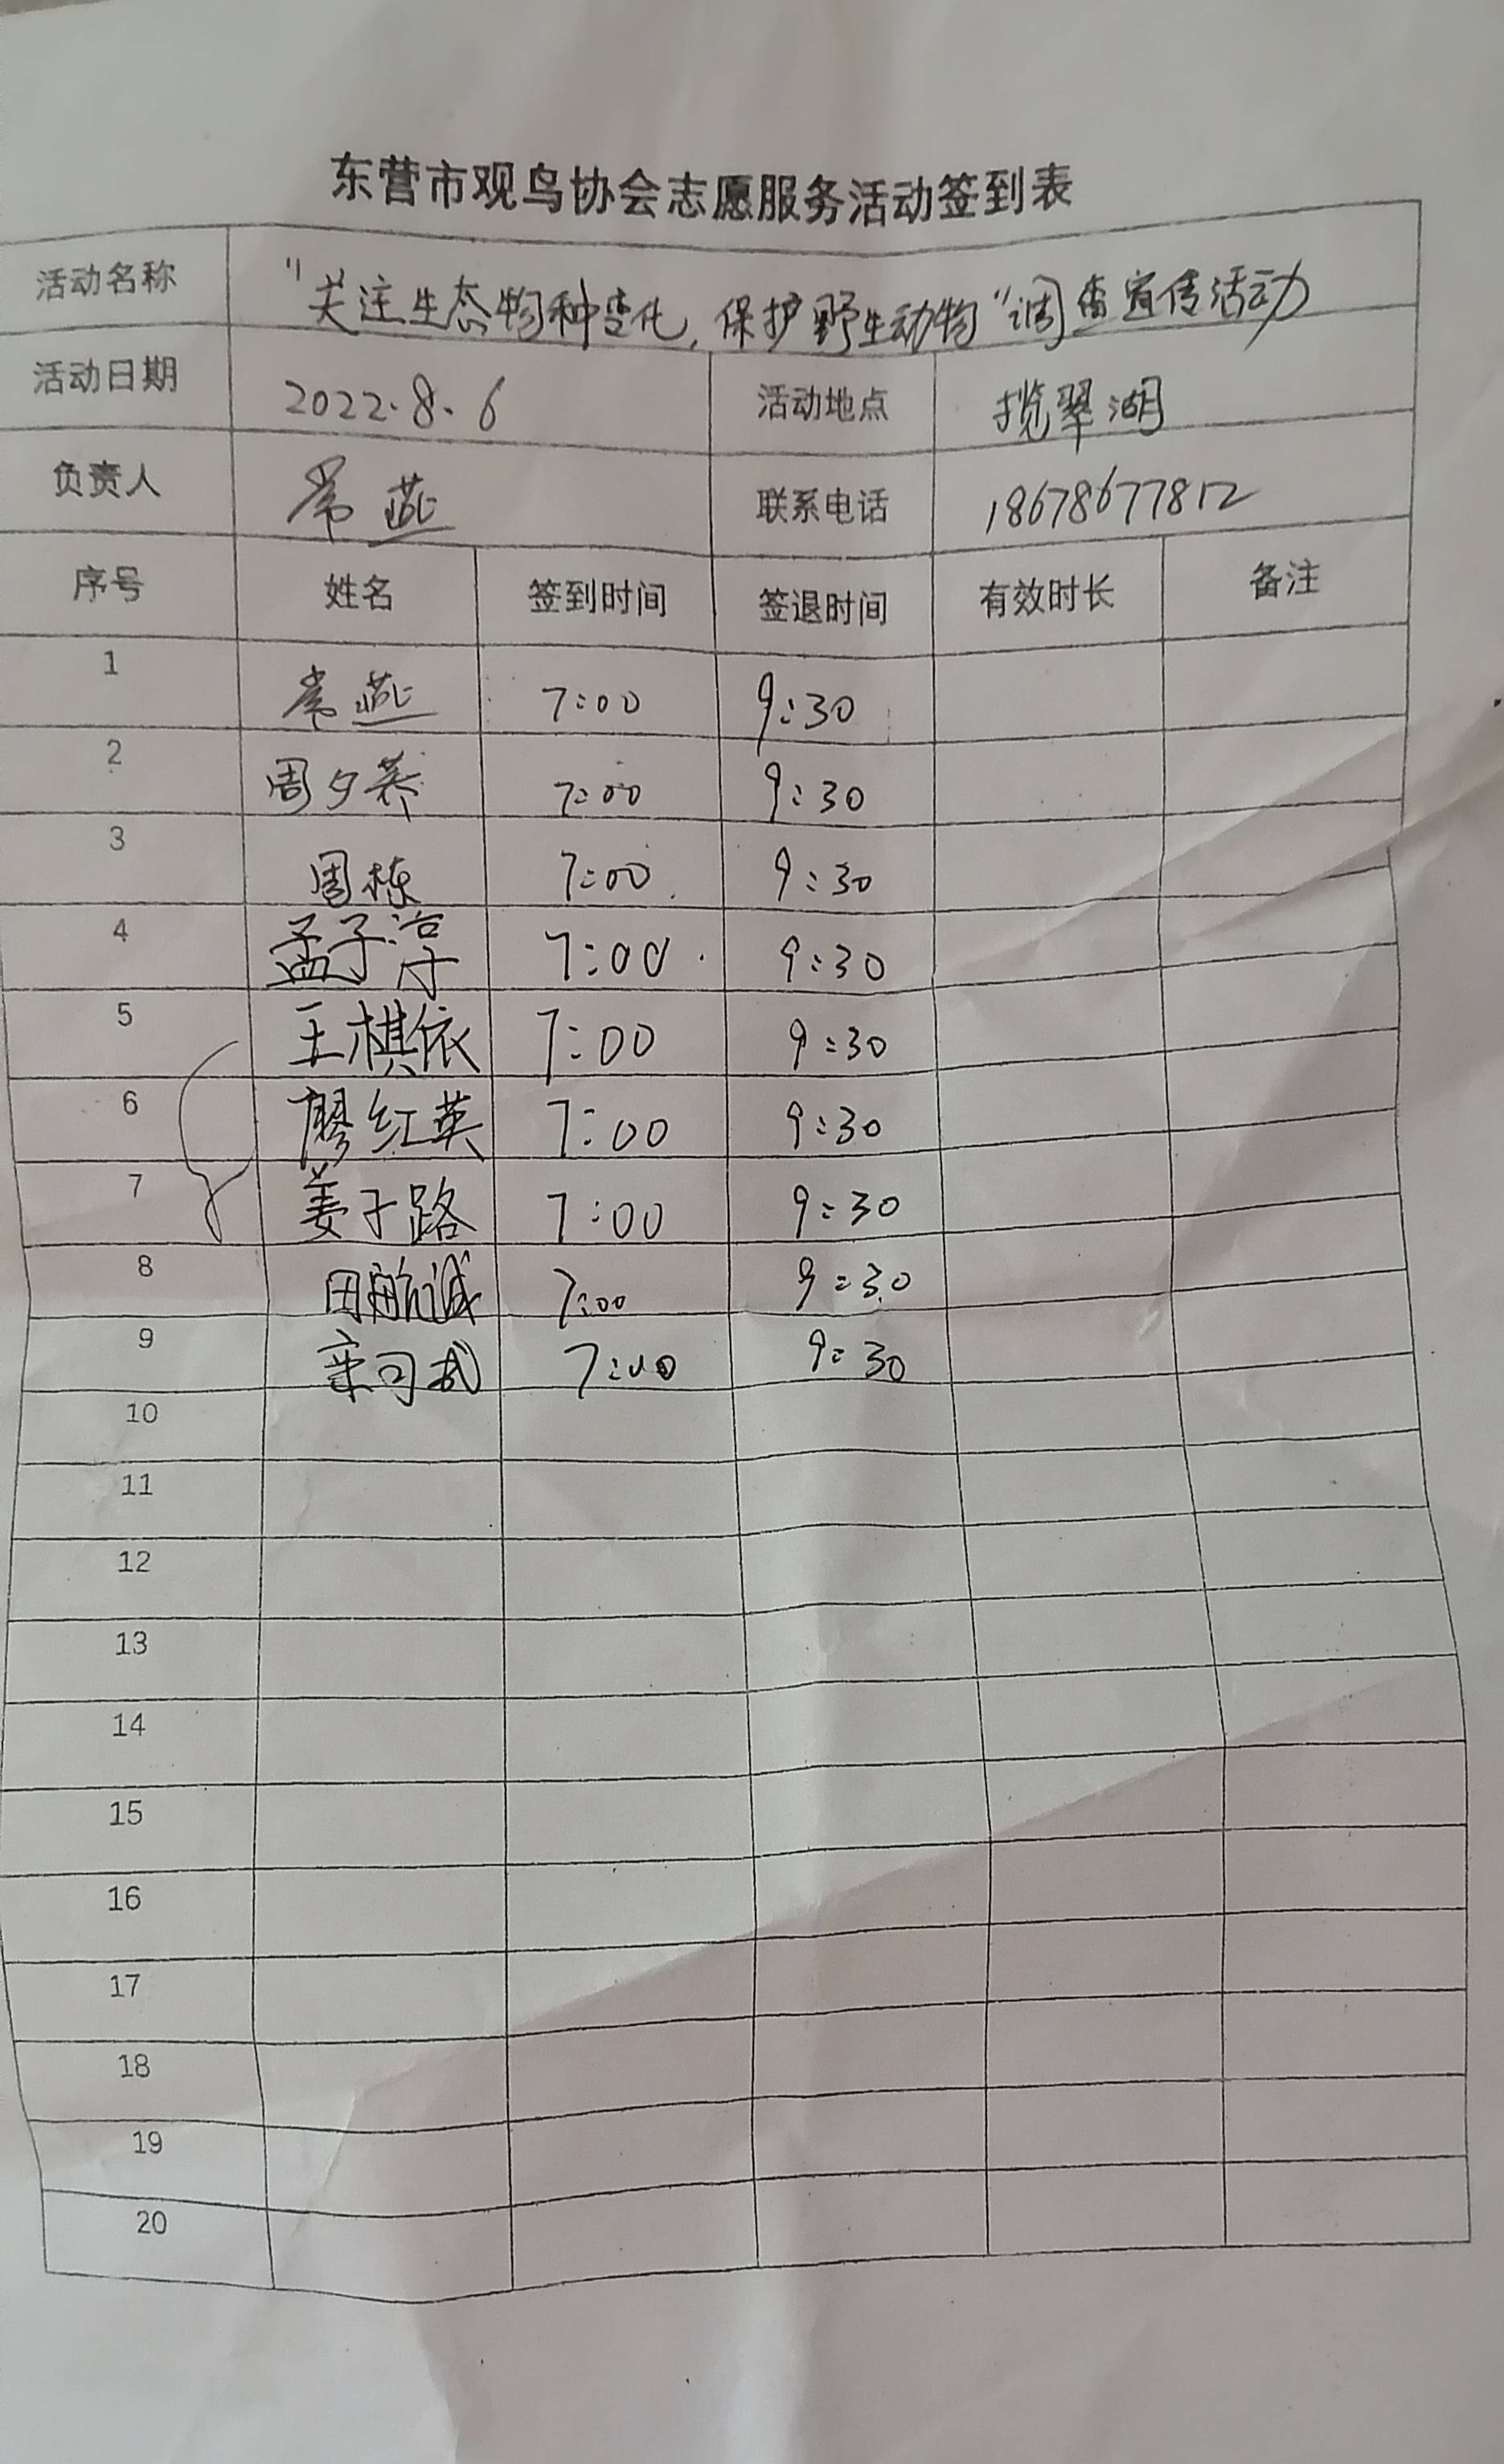 东营市观鸟协会志愿服务活动签到表
活动名称 "关注生态物种变化,保护野生动物"调查宣传活动
活动日期 2022.8.6 活动地点 揽翠湖
负责人 常燕 联系电话 18678677812
序号 姓名 签到时间 签退时间 有效时长 备注
1 常燕 7:00 9:30
2 周夕荞 7:00 9:30
3 周栋 7:00 9:30
4 孟子淳 7:00 9:30
5 王棋依 7:00 9:30
6 廖红英 7:00 9:30
7 姜子路 7:00 9:30
8 田航诚 7:00 9:30
9 司 7:00 9:30
10
11
12
13
14
15
16
17
18
19
20